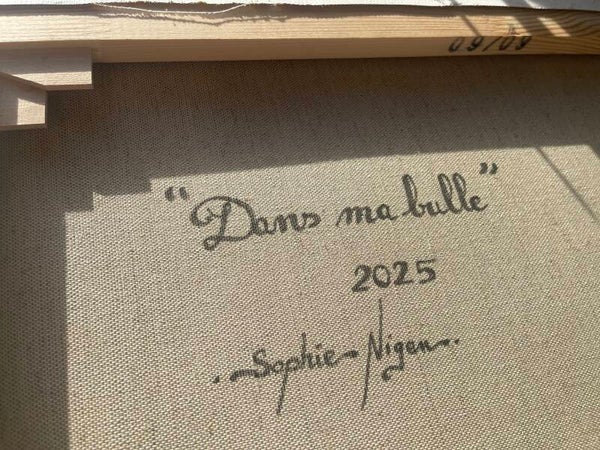 09/09
"Dans ma bulle"
2025
. Sophie Nigen.